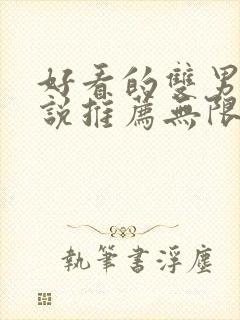 好看的雙男
說推薦無限
執筆書浮塵